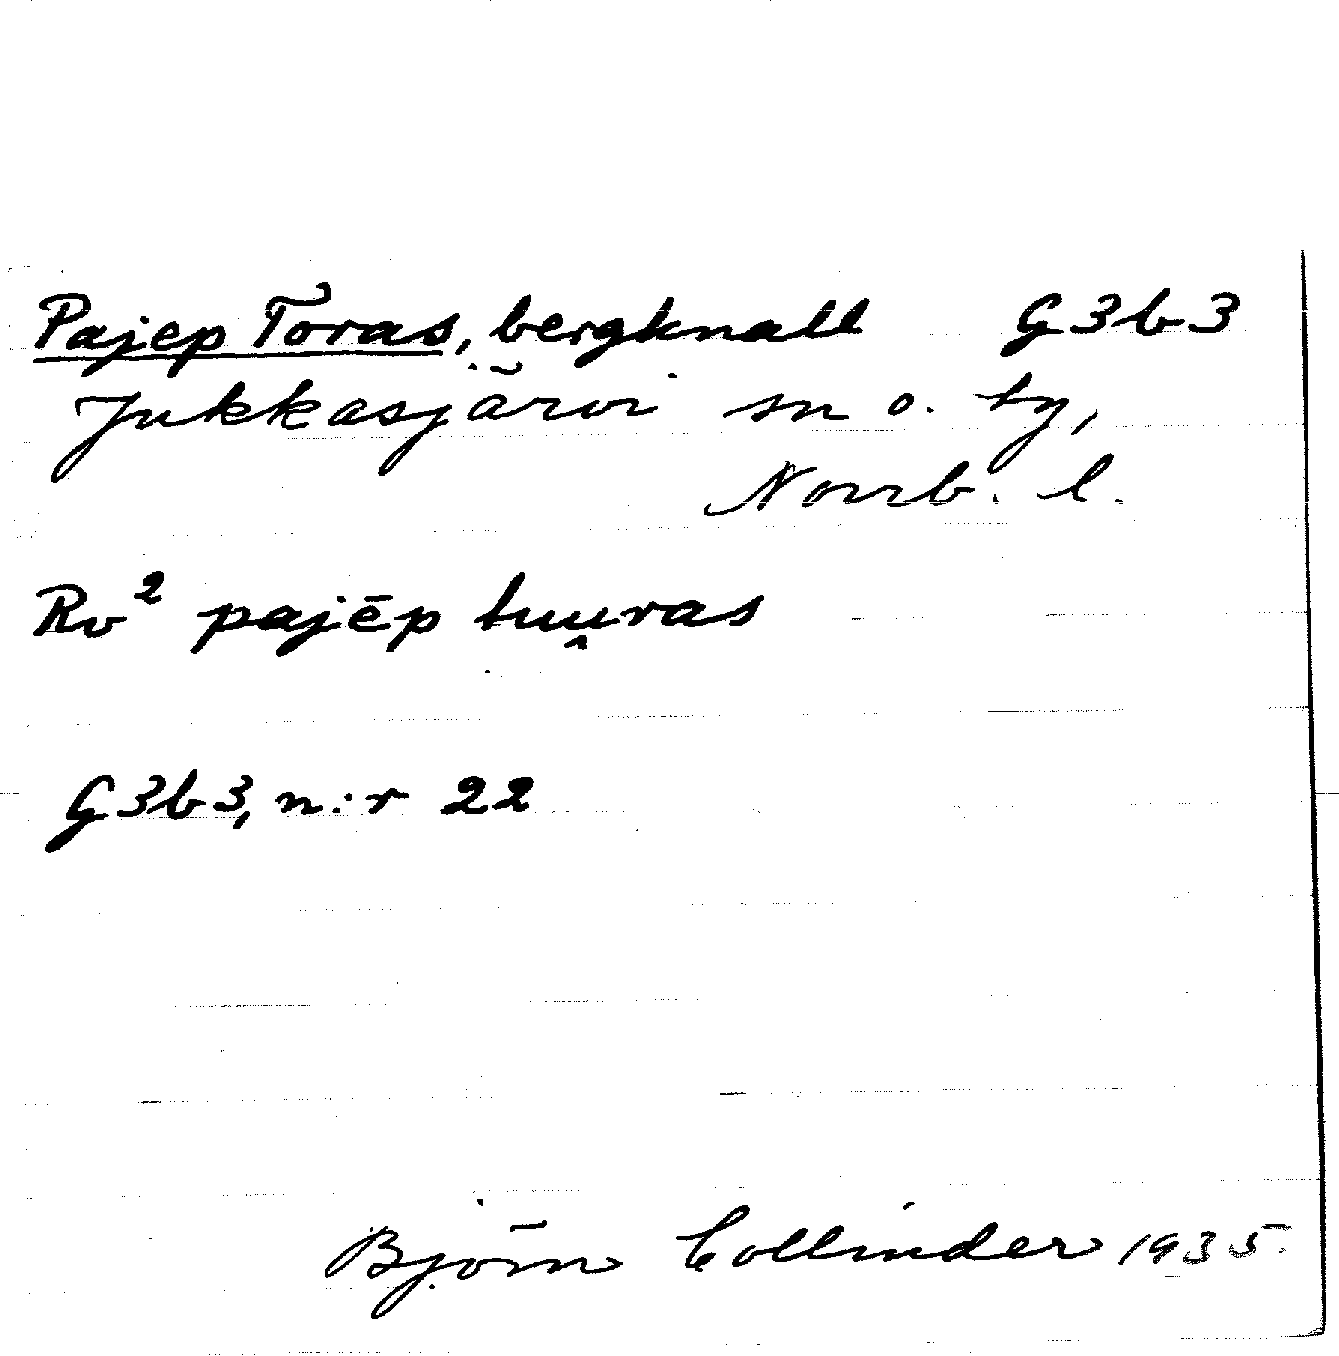 Pajep Toras, bergknall G3b3
Jukkasjärvi sn o. by,
Norrb. l.
Rv² pajēp tuu̯ras
G3b3, n:r 22
Björn Collinder 1935.